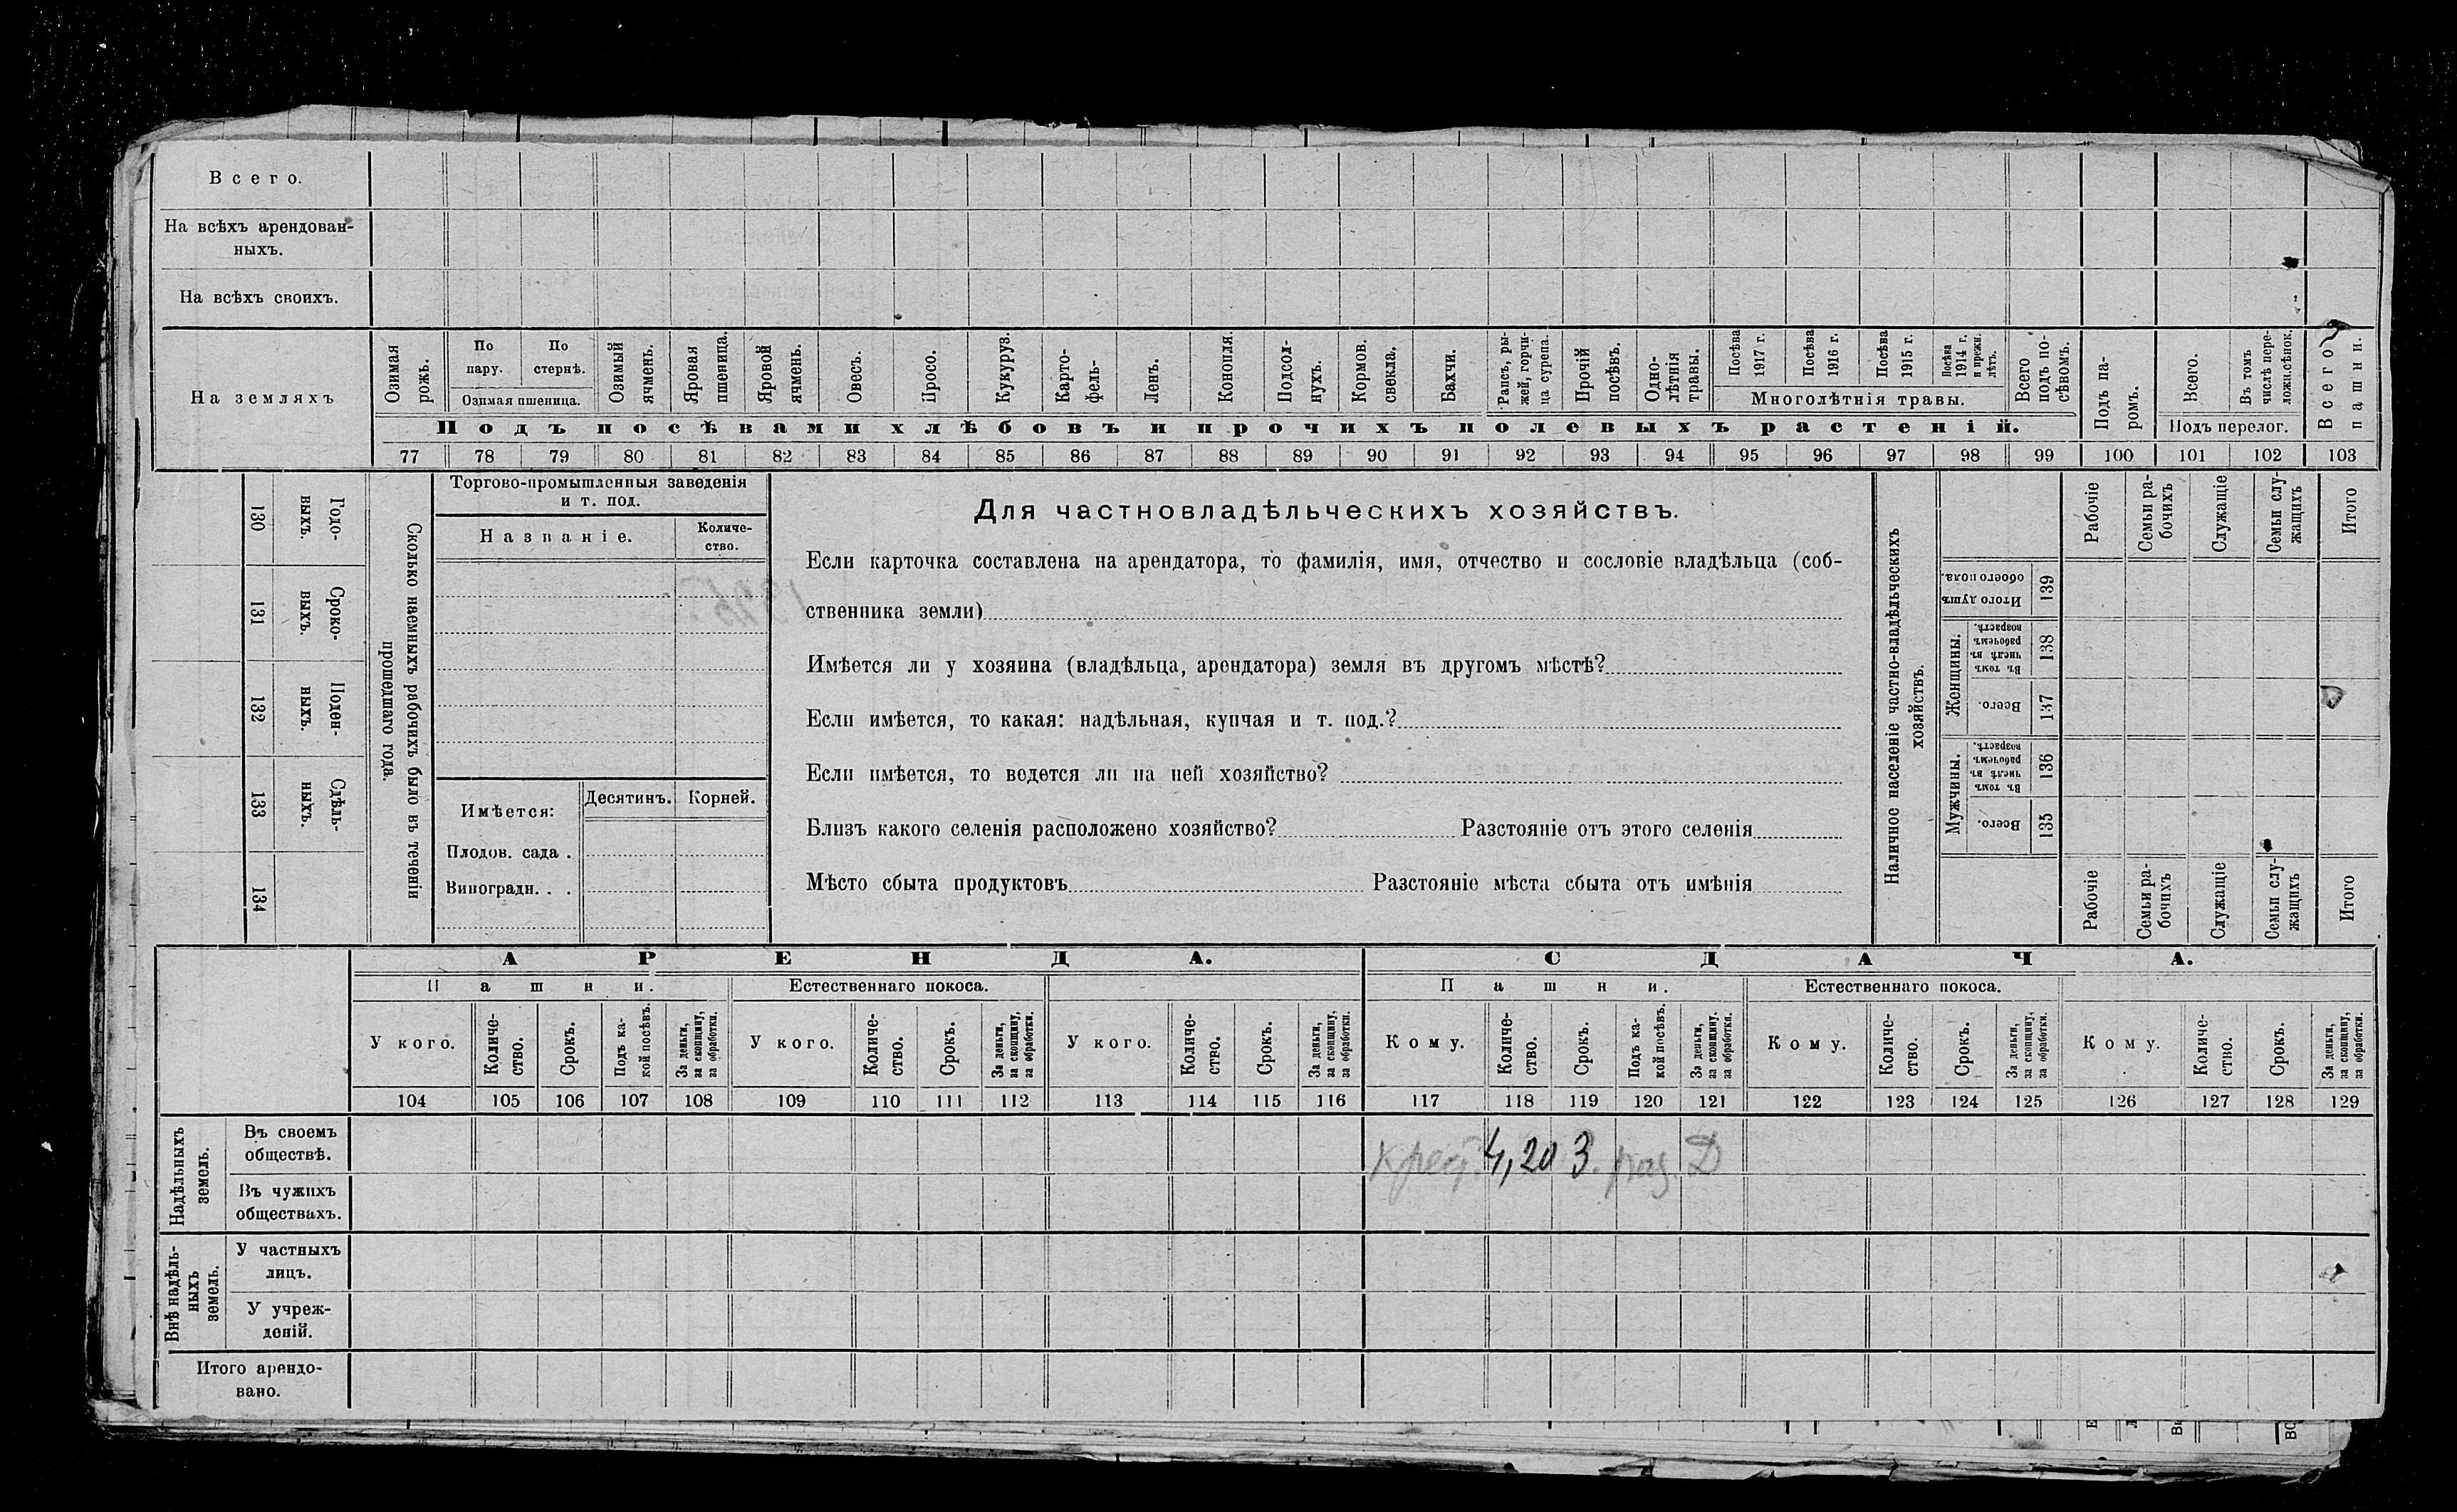 Всего.
На всѣхъ арендован-
ныхъ.
На всѣхъ своихъ.
На земляхъ
Озимая рожь.
По пару.
По стернѣ.
Озимая пшеница.
Озимый ячмень.
Яровая пшеница.
Яровой ячмень.
Овесъ.
Просо.
Кукуруз.
Карто-
фель.
Ленъ.
Конопля.
Подсол-
нухъ.
Кормов. свекла.
Бахчи.
Рапсъ, ры-
жей, горчи-
ца сурепа.
Прочій посѣвъ.
Одно-
лѣтнія травы.
Посѣва 1917 г.
Посѣва 1916 г.
Посѣва 1915 г.
Посѣва 1914 г. и прежн. лѣтъ.
Многолѣтнія травы.
Всего подъ по-
сѣвомъ.
Подъ па-
ромъ.
Всего.
Въ томъ числѣ пере-
ложн.сѣнок.
Подъ перелог.
Всего пашни.
Подъ посѣвами хлѣбовъ и прочихъ полевыхъ растеній.
77 78 79 80 81 82 83 84 85 86 87 88 89 90 91 92 93 94 95 96 97 98 99 100 101 102 103
Годо-
выхъ.
130
Сроко-
выхъ.
131
Поден-
ныхъ.
132
Сдѣль-
ныхъ.
133
134
Сколько наемныхъ рабочихъ было въ теченіи
прошедшаго года.
Торгово-промышленныя заведенія
и т. под.
Названіе.
Количе-
ство.
Имѣется:
Десятинъ.
Корней.
Плодов. сада .
Виноградн. . .
Для частновладѣльческихъ хозяйствъ.
Если карточка составлена на арендатора, то фамилія, имя, отчество и сословіе владѣльца (соб-
ственника земли)
Имѣется ли у хозяина (владѣльца, арендатора) земля въ другомъ мѣстѣ?
Если имѣется, то какая: надѣльная, купчая и т. под.?
Если имѣется, то ведется ли на ней хозяйство?
Близъ какого селенія расположено хозяйство? Разстояніе отъ этого селенія
Мѣсто сбыта продуктовъ Разстояніе мѣста сбыта отъ имѣнія
Наличное населеніе частно-владѣльческихъ
хозяйствъ.
Рабочіе
Семьи ра-
бочихъ
Служащіе
Семьи слу-
жащихъ
Итого
Итого душъ обоего пола.
139
Женщины.
Въ томъ числѣ въ рабочемъ возрастѣ.
138
Всего.
137
Мужчины.
Въ томъ числѣ въ рабочемъ возрастѣ.
136
Всего.
135
Рабочіе
Семьи ра-
бочихъ
Служащіе
Семьи слу-
жащихъ
Итого
АРЕНДА.
СДАЧА.
Пашни.
Естественнаго покоса.
Пашни.
Естественнаго покоса.
У кого.
Количе-
ство.
Срокъ.
Подъ ка-
кой посѣвъ.
За деньги, за скопщину, за обработки.
У кого.
Количе-
ство.
Срокъ.
За деньги, за скопщину, за обработки.
У кого.
Количе-
ство.
Срокъ.
За деньги, за скопщину, за обработки.
Кому.
Количе-
ство.
Срокъ.
Подъ ка-
кой посѣвъ.
За деньги, за скопщину, за обработки.
Кому.
Количе-
ство.
Срокъ.
За деньги, за скопщину, за обработки.
Кому.
Количе-
ство.
Срокъ.
За деньги, за скопщину, за обработки.
104 105 106 107 108 109 110 111 112 113 114 115 116 117 118 119 120 121 122 123 124 125 126 127 128 129
Надѣльныхъ
земель.
Въ своемъ
обществѣ.
4,20 3. Д
Въ чужихъ
обществахъ.
Внѣ надѣль-
ныхъ
земель.
У частныхъ
лицъ.
У учреж-
деній.
Итого арендо-
вано.